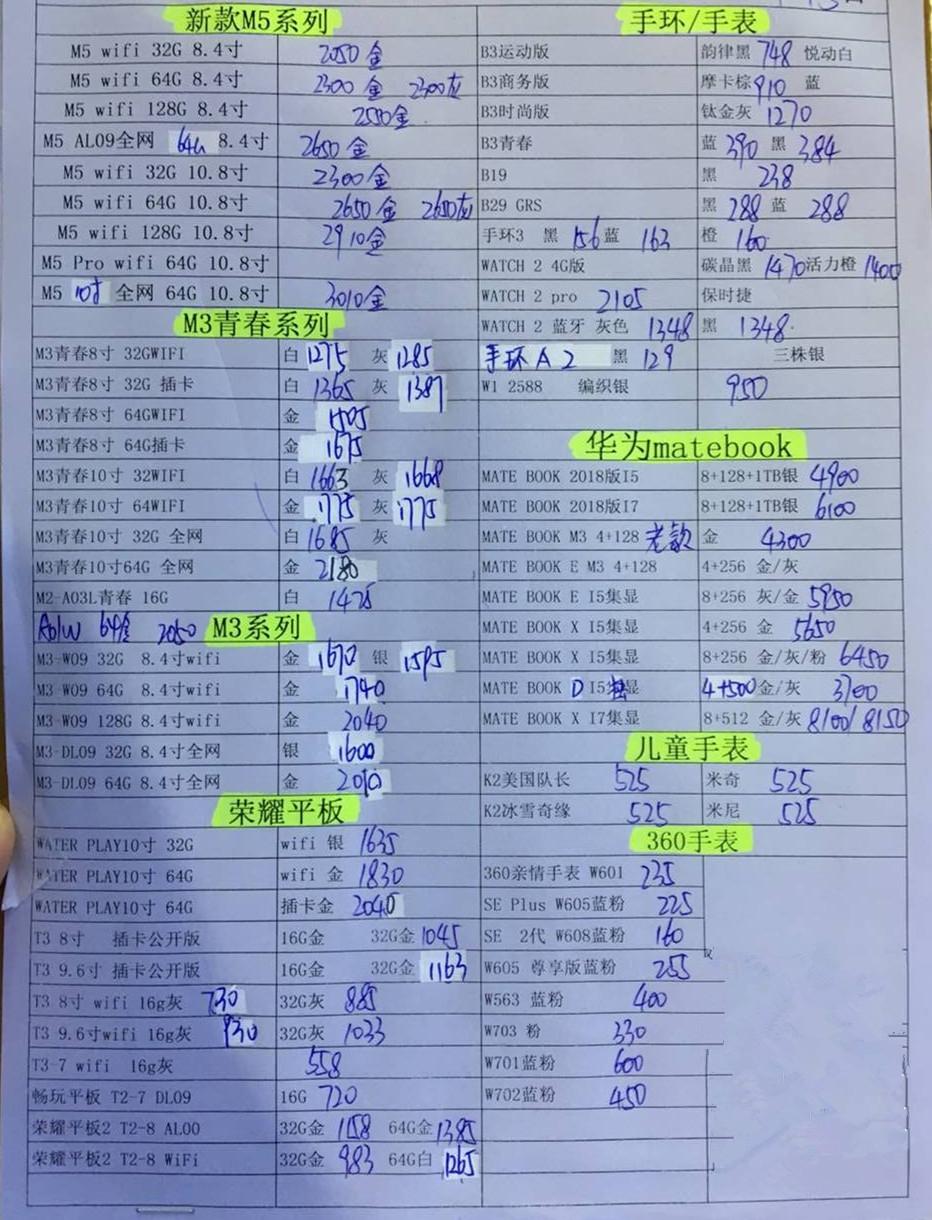 新款M5系列
M5 wifi 32G 8.4寸 2050 金
M5 wifi 64G 8.4寸 2300 金 2300灰
M5 wifi 128G 8.4寸 2580金
M5 AL09全网 64G 8.4寸 2650 金
M5 wifi 32G 10.8寸 2300金
M5 wifi 64G 10.8寸 2650金 2650灰
M5 wifi 128G 10.8寸 2910金
M5 Pro wifi 64G 10.8寸
M5 10寸 全网 64G 10.8寸 3010金
M3青春系列
M3青春8寸 32GWIFI 白 1275 灰 1285
M3青春8寸 32G 插卡 白 1365 灰 1387
M3青春8寸 64GWIFI 金 1505
M3青春8寸 64G插卡 金 1675
M3青春10寸 32WIFI 白 1663 灰 1668
M3青春10寸 64WIFI 金 1775 灰 1775
M3青春10寸 32G 全网 白 1685 灰
M3青春10寸64G 全网 金 2180
M2-A03L青春 16G 白 1475
64金 2050 M3系列
M3-W09 32G 8.4寸wifi 金 1670 银 1595
M3-W09 64G 8.4寸wifi 金 1740
M3-W09 128G 8.4寸wifi 金 2040
M3-DL09 32G 8.4寸全网 银 1600
M3-DL09 64G 8.4寸全网 金 2010
荣耀平板
WATER PLAY10寸 32G wifi 银 1635
WATER PLAY10寸 64G wifi 金 1830
WATER PLAY10寸 64G 插卡金 2040
T3 8寸 插卡公开版 16G金 32G金 1045
T3 9.6寸 插卡公开版 16G金 32G金 1163
T3 8寸 wifi 16g灰 730 32G灰 885
T3 9.6寸wifi 16g灰 930 32G灰 1033
T3-7 wifi 16g灰 558
畅玩平板 T2-7 DL09 16G 720
荣耀平板2 T2-8 AL00 32G金 1158 64G金 1385
荣耀平板2 T2-8 WiFi 32G金 983 64G白 1265
手环/手表
B3运动版 韵律黑 748 悦动白
B3商务版 摩卡棕 910 蓝
B3时尚版 钛金灰 1270
B3青春 蓝 390 黑 384
B19 黑 238
B29 GRS 黑 288 蓝 288
手环3 黑 156 蓝 163 橙 160
WATCH 2 4G版 碳晶黑 1470 活力橙 1400
WATCH 2 pro 2105 保时捷
WATCH 2 蓝牙 灰色 1348 黑 1348
手环 A2 黑 129 三株银
W1 2588 编织银 950
华为matebook
MATE BOOK 2018版I5 8+128+1TB银 4900
MATE BOOK 2018版I7 8+128+1TB银 6100
MATE BOOK M3 4+128 老款 金 4300
MATE BOOK E M3 4+128 4+256 金/灰
MATE BOOK E I5集显 8+256 灰/金 5950
MATE BOOK X I5集显 4+256 金 5650
MATE BOOK X I5集显 8+256 金/灰/粉 6450
MATE BOOK D I5独显 4+500金/灰 3700
MATE BOOK X I7集显 8+512 金/灰 8100/8150
儿童手表
K2美国队长 525 米奇 525
K2冰雪奇缘 525 米尼 525
360手表
360亲情手表 W601 235
SE Plus W605蓝粉 225
SE 2代 W608蓝粉 160
W605 尊享版蓝粉 255
W563 蓝粉 400
W703 粉 330
W701蓝粉 600
W702蓝粉 450